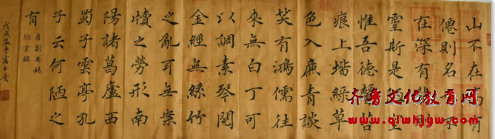 山不在高有
僊則名水不
在深有龍則
靈斯是陋室
惟吾德馨苔
痕上堦綠草
色入簾青談
笑有鴻儒往
來無白丁可
以調素琴閱
金經無絲竹
之亂耳無案
牘之勞形南
陽諸葛廬西
蜀子雲亭孔
子云何陋之
有
唐劉禹錫
陋室銘
齐鲁文化教育网
www.qlwhjyw.com